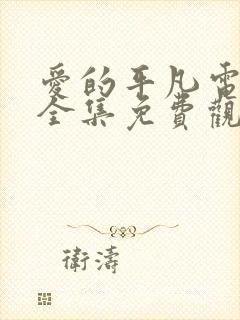 愛的平凡電
全集免費觀
衛濤